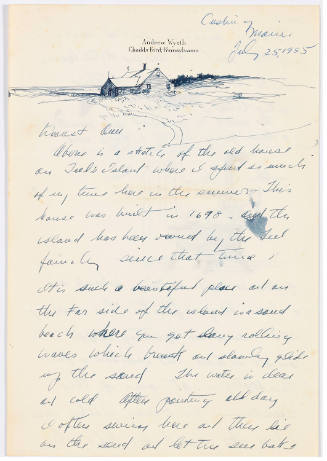 Cushing
Maine
July 25, 1955
Andrew Wyeth
Chadds Ford, Pennsylvania
Above is a sketch of the old house
on Teel's Island where I spend so much
of my time here in the summer. This
house was built in 1698. and the
island has been owned by the Teel
family since that time,
It is such a beautiful place out on
the Far side of the island is a sand
beach where you get long rolling
waves which break and slowly glide
up the sand The water is clear
and cold After painting all day
I often swim here and then lie
on the sand and let the sun bake